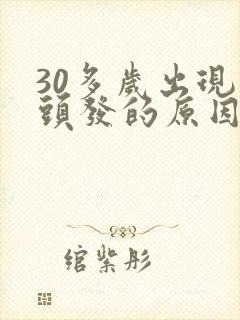 30多歲出現
頭發的原因
綰紫彤